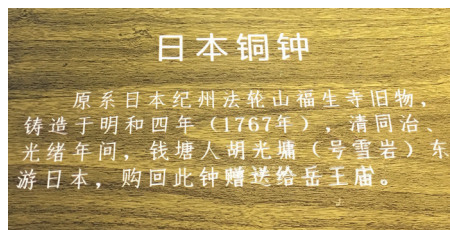 日本铜钟
原系日本纪州法轮山福生寺旧物、
铸造于明和四年（1767年），清同治、
光绪年间，钱塘人胡光墉（号雪岩）东
游日本，购回此钟赠送给岳王庙。